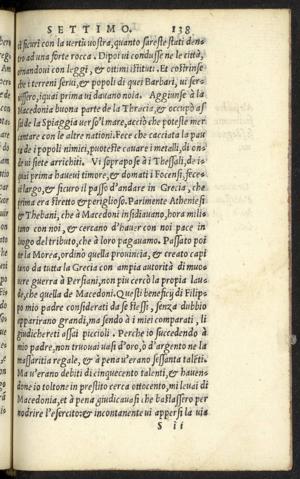 SETTIMO. 138
et sicuri con la uertù uostra, quanto sareste stati den-
tro ad una forte rocca. Dipoi ui condusse ne le città,
ornandoui con leggi, & ottimi istituti. Et costrinse
che i terreni serui, & popoli di quei Barbari, ui ser-
uissero, i quai prima ui dauano noia. Aggiunse à la
Macedonia buona parte de la Thracia, & occupò as
sai de la Spiaggia uerso'l mare, acciò che poteste mer
cantare con le altre nationi. Fece che cacciata la pau
ra de i popoli nimici, poteste cauare i metalli, di on-
de ui siete arrichiti. Vi soprapose à i Thessali, de i
qui prima haueui timore, & domati i Focensi, fece
ui largo, & sicuro il passo d'andare in Grecia, che
prima era stretto & periglioso. Parimente Atheniesi
& Thebani, che à Macedoni insidiauano, hora mili-
tano con noi, & cercano d'hauer con noi pace in
luogo del tributo, che à loro pagauamo. Passato poi
ne la Morea, ordinò quella prouincia, & creato capi
tano da tutta la Grecia con ampia autorità di muo-
uere guerra à Persiani, non piu cercò la propia lau-
de, che quella de Macedoni. Questi beneficij di Filip-
po mio padre considerati da se stessi, senza dubbio
apparirano grandi, ma sendo à i miei comparati, li
giudichereti assai piccioli. Perche io succedendo à
mio padre, non trouai uasi d'oro, ò d'argento ne la
massaritia regale, & à pena u'erano sessanta talēti.
Ma u'erano debiti di cinquecento talenti, & hauen-
done io toltone in prestito cerca ottocento, mi leuai di
Macedonia, et à pena giudicauasi che bastassero per
nodrire l'esercito: & incontanente ui appersi la uia
S ii